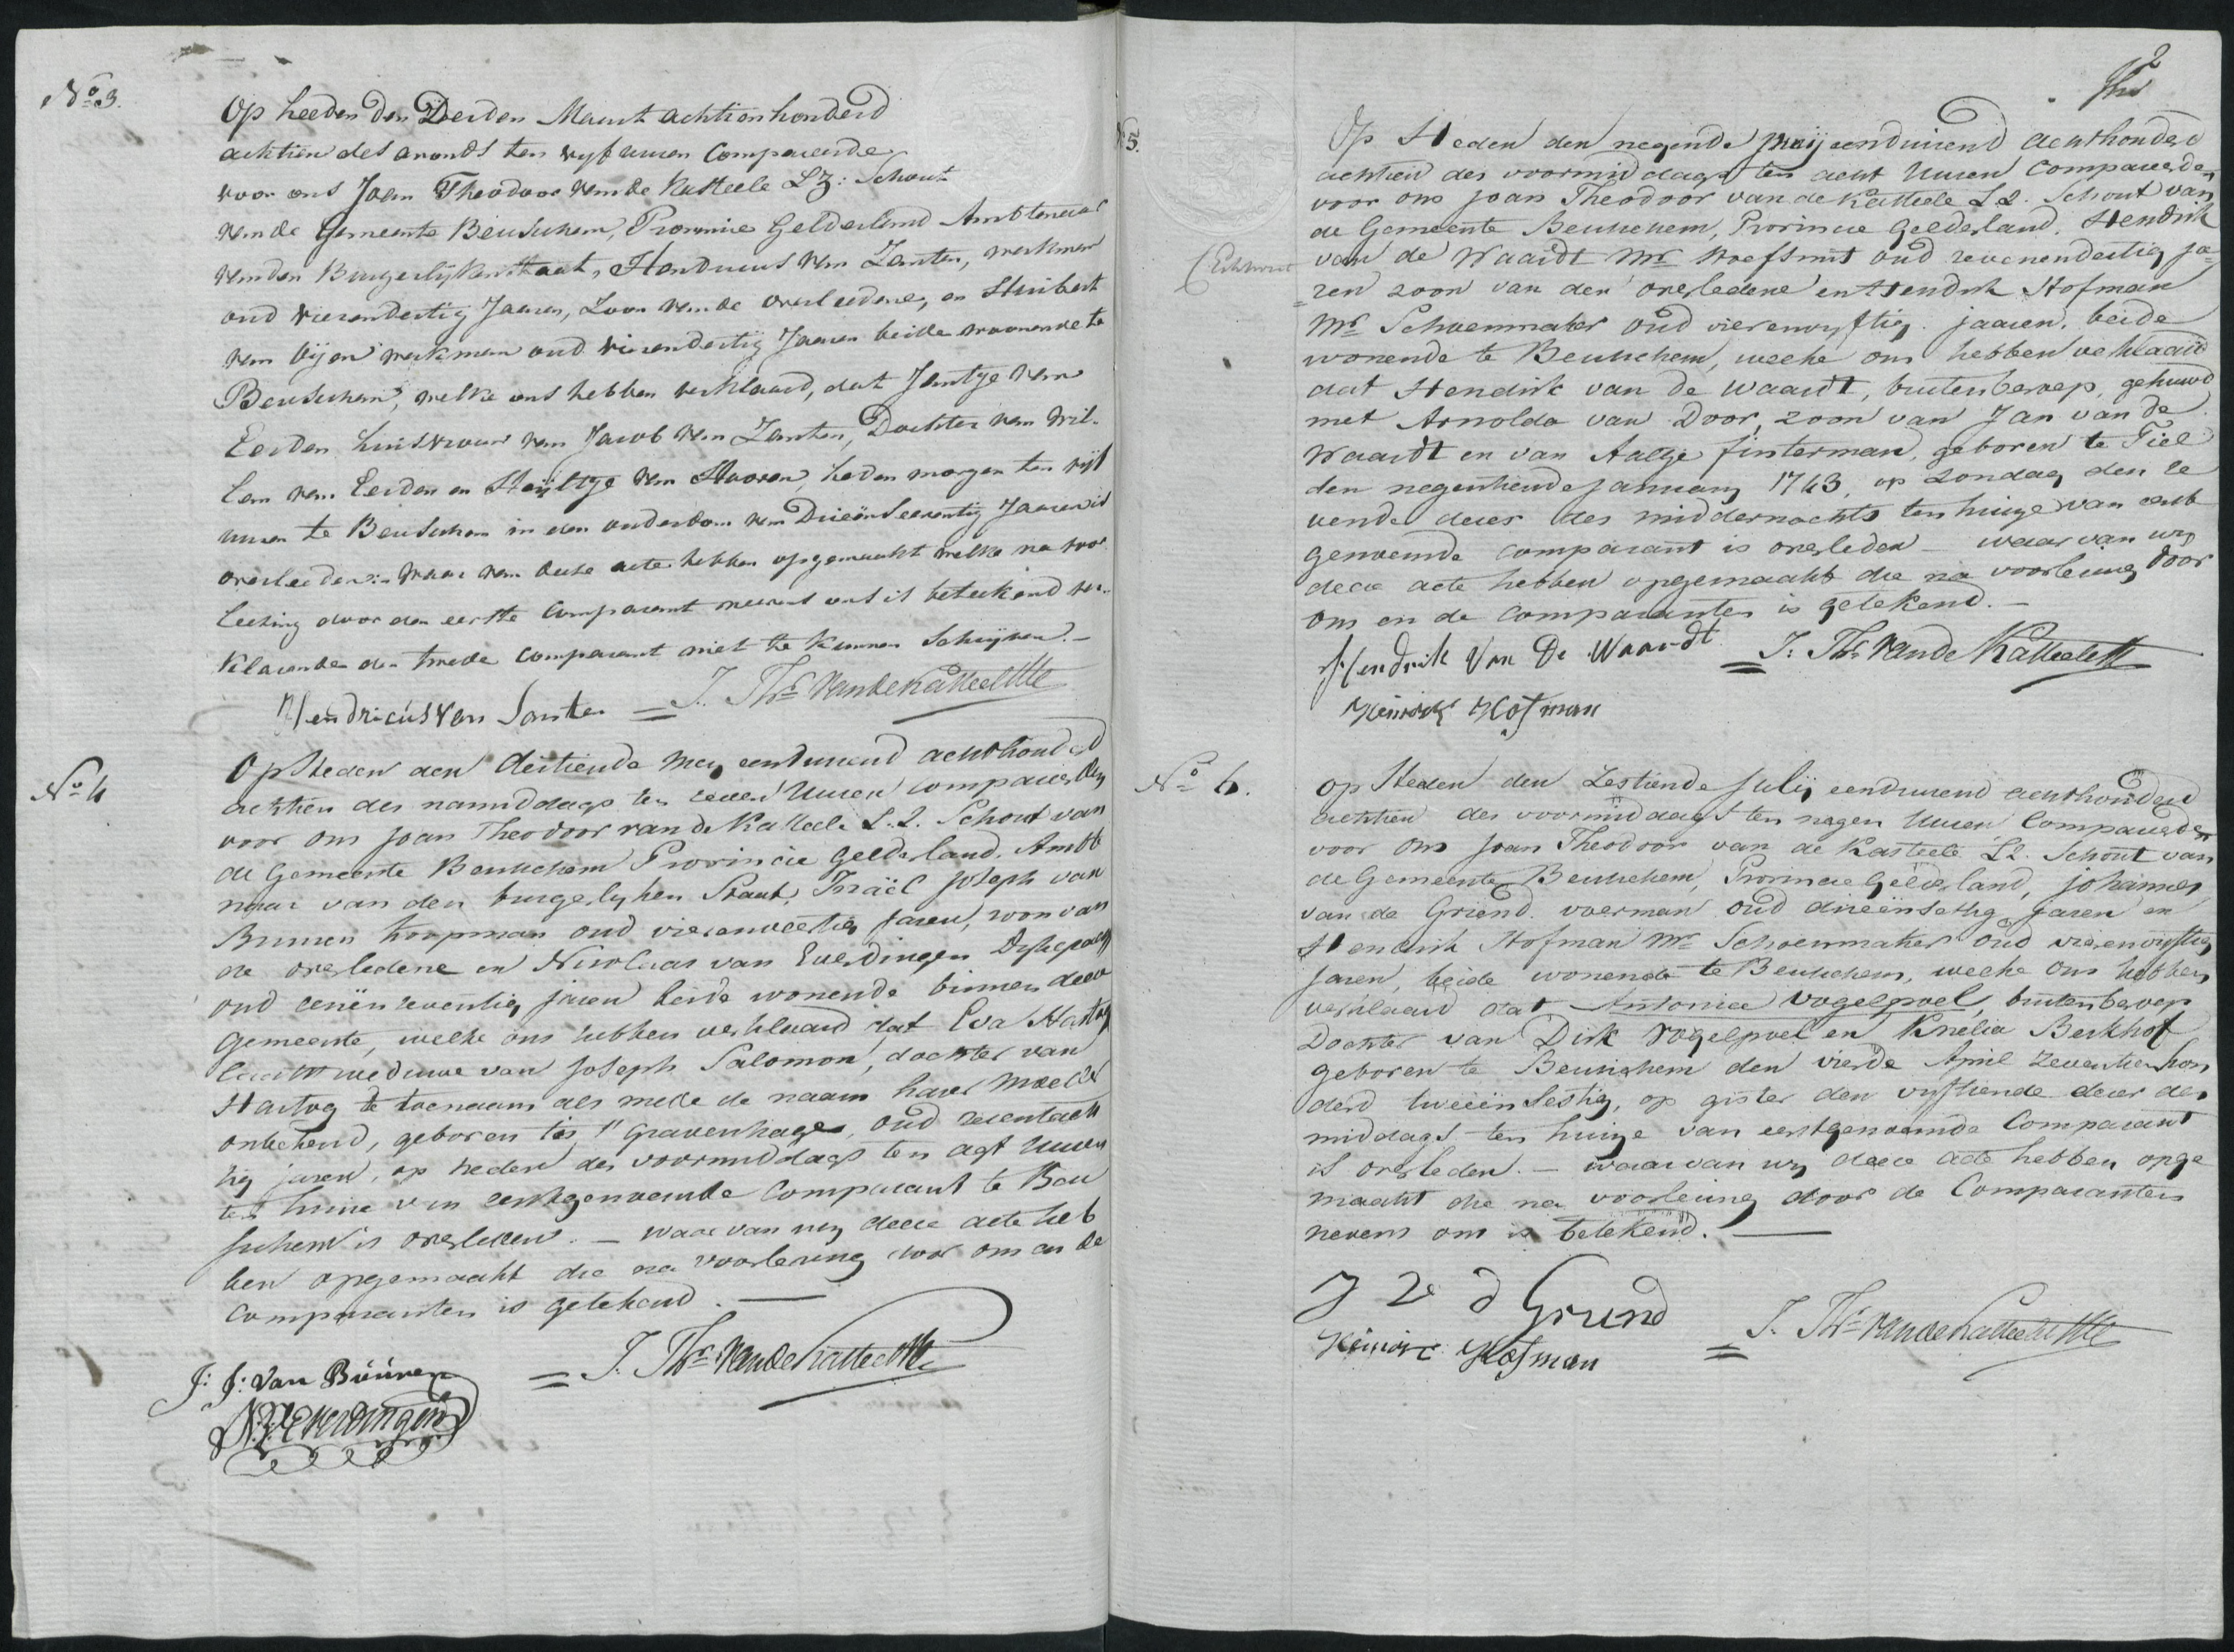 No. 3.
Op heeden den Derden Maart achtienhonderd
achtien des avonds ten vyf uuren Compareerde
voor ons Joan Theodoor van de Kasteele Lz: Schout
van de Gemeente Beusichem, Provincie Gelderland Ambtenaar
van den Burgerlijken Staat, Hendricus van Zanten, werkman
oud vierendertig Jaaren, Zoon van de overleedene, en Huibert
van werkman oud vierendertig Jaaren beide woonende te
Beusichem, welke ons hebben verklaard, dat Jantje van
Eerden huisvrouw van Jacob van Zanten, Dochter van Wil-
lem van Eerden en van heden morgen ten vijf
uuren te Beusichem in den ouderdom van Drieënseeventig Jaaren is
overleeden: waar van deese acte hebben opgemaakt welke na voor
leesing door den eerste Comparant neevens ons is beteekend ver-
klarende den tweede Comparant niet te kunnen Schrijven.-
Hendricus van Santen = J. Thr. van de Kasteele
No. 4
Op Heden den dertiende Mey eenduizend achthonderd
achttien des namiddags ten zeven Uuren compareerden
voor ons Joan Theodoor van de Kasteele L.Z. Schout van
de Gemeente Beusichem Provincie Gelderland. Ambte
naar van den burgerlyken Staat, Israël Joseph van
Buuren koopman oud vierenveertig jaren, zoon van
de overledene en Nicolaas van Everdingen
oud eenënzeventig jaren beide wonende binnen deeze
Gemeente, welke ons hebben verklaard dat Eva Hartog
weduwe van Joseph Salomon, dochter van
Hartog de toenaam als mede de naam harer Moeder
onbekend, geboren te 's Gravenhage, oud zeventach
tig jaren, op heden des voormiddags ten agt Uuren
ten huize van eerstgenoemde Comparant te Beu
sichem is overleden. — waar van wy deeze acte heb
ben opgemaakt die na voorlezing door ons en de
Comparanten is getekend. —
J: J: van Büüren = J. Thr. van de Kasteele
N. V. Everdingen
2
No 5.
Op Heden den negende Juny eenduizend achthonderd
achttien des voormiddags ten acht Uuren Compareerden
voor ons Joan Theodoor van de Kasteele LZ. Schout van
de Gemeente Beusichem, Provincie Gelderland. Hendrik
van de Waardt Mr. Hoefsmit oud zevenendertig ja-
=ren zoon van den overledene en Hendrik Hofman
Mr. Schoenmaker oud vierenvyftig jaaren. beide
wonende te Beusichem, welke ons hebben verklaard
dat Hendrik van de Waardt, buiten beroep, gehuwd
met Arnolda van Door, zoon van Jan van de
Waardt en van Aaltje Finterman, geboren te Tiel
den negentiende January 1743, op Zondag den ze
vende dezer des middernachts ten huize van eerst
genoemde comparant is overleden — waar van wy
deeze acte hebben opgemaakt die na voorlezing door
ons en de comparanten is getekend. —
Hendrik Van De Waardt = J. Thr. van de Kasteele
Heinrich Hofman
No 6.
Op Heden den Zestiende July eenduizend achthonderd
achttien des voormiddags ten negen Uuren Compareerden
voor ons Joan Theodoor van de Kasteele LZ. Schout van
de Gemeente Beusichem, Provincie Gelderland, Johannes
van de Griend. voerman oud drieënsestig jaren en
Hendrik Hofman Mr. Schoenmaker oud vierenvyftig
jaren, beide wonende te Beusichem, welke ons hebben
verklaard dat Antonia Vogelpoel, buiten beroep
Dochter van Dirk Vogelpoel en Knelia Berkhof
geboren te Beusichem den vierde April Zeventienhon
derd tweeënsestig, op gister den vyftiende dezer des
middags ten huize van eerstgenoemde Comparant
is overleden. — waar van wy deeze acte hebben opge
maakt die na voorlezing door de Comparanten
nevens ons is betekend. —
J V d Griend
Heinrich Hofman = J. Thr. van de Kasteele